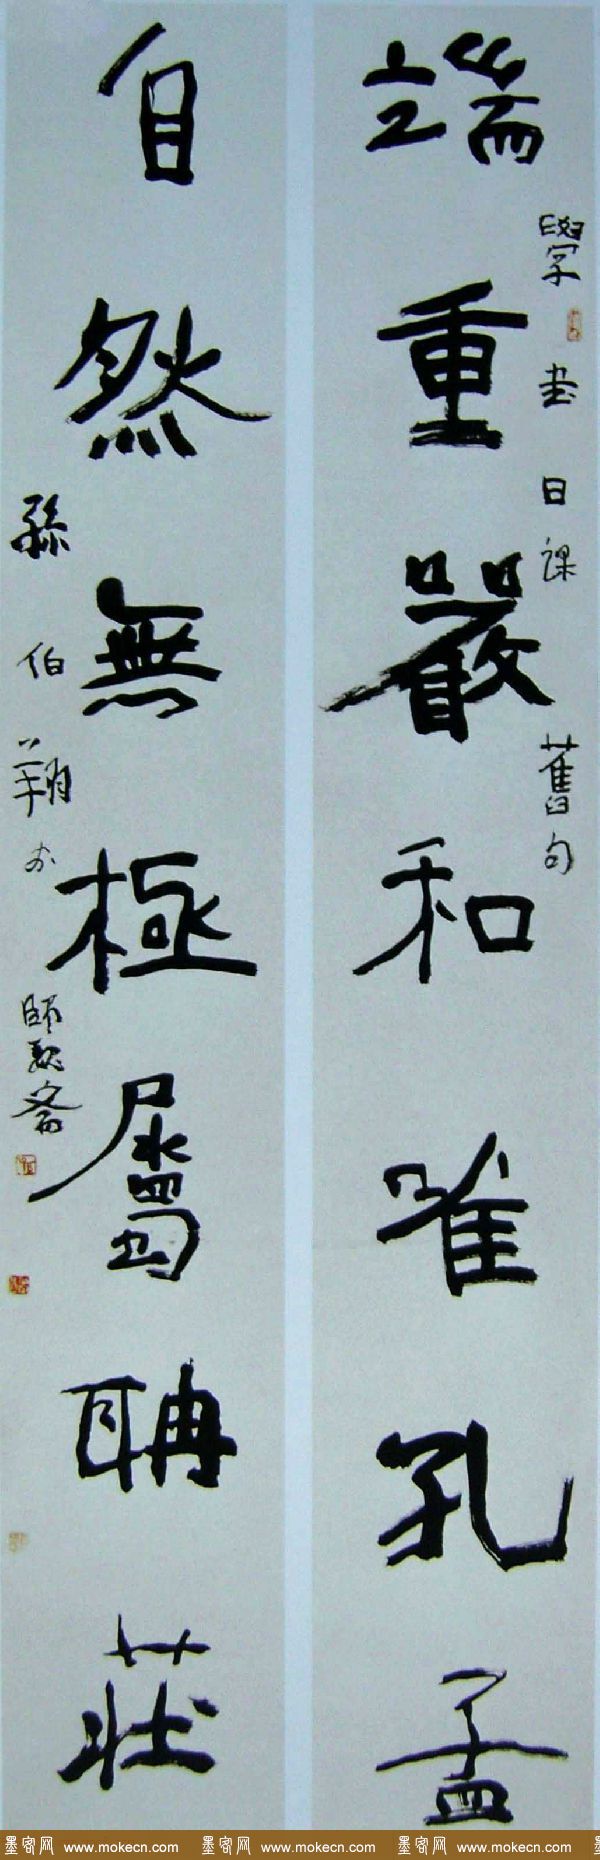 端重嚴和唯孔孟
學書日課舊句
自然無極屬聃莊
孫伯翔於師魏齋
墨客网 www.mokecn.com 墨客网 www.mokecn.com 墨客网 www.mokecn.com 墨